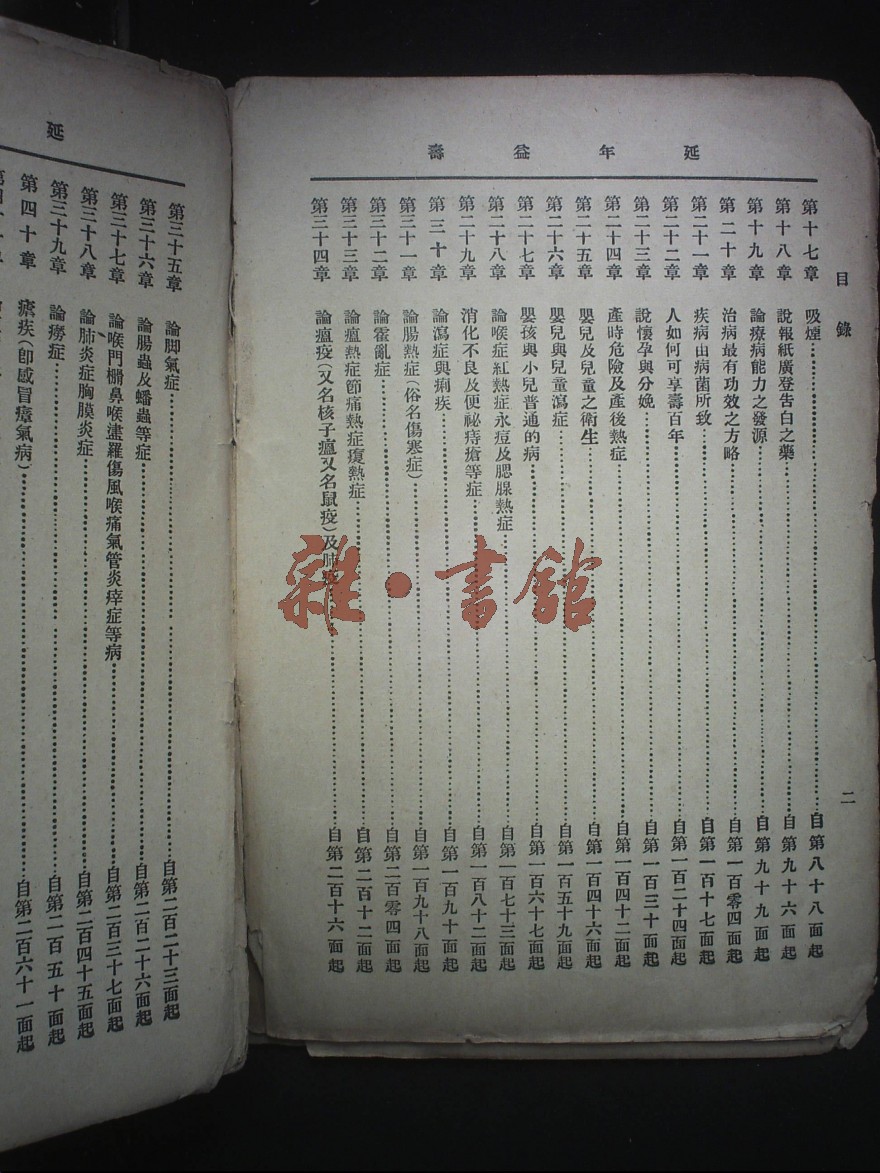 延年益壽
目錄
二
第十七章 吸煙 自第八十八面起
第十八章 說報紙廣登告白之藥 自第九十六面起
第十九章 論療病能力之發源 自第九十九面起
第二十章 治病最有功效之方略 自第一百零四面起
第二十一章 疾病由病菌所致 自第一百十七面起
第二十二章 人如何可享壽百年 自第一百二十四面起
第二十三章 說懷孕與分娩 自第一百三十面起
第二十四章 產時危險及產後熱症 自第一百四十二面起
第二十五章 嬰兒及兒童之衛生 自第一百四十六面起
第二十六章 嬰兒與兒童瀉症 自第一百五十九面起
第二十七章 嬰孩與小兒普通的病 自第一百六十七面起
第二十八章 論喉症紅熱症水痘及腮腺熱症 自第一百七十三面起
第二十九章 消化不良及便祕痔瘡等症 自第一百八十二面起
第三十章 論瀉症與痢疾 自第一百九十面起
第三十一章 論腸熱症(俗名傷寒症) 自第一百九十八面起
第三十二章 論霍亂症 自第二百零四面起
第三十三章 論瘟熱症節痛熱症復熱症 自第二百十二面起
第三十四章 論瘟疫(又名核子瘟又名鼠疫)及肺 自第二百十六面起
延
第三十五章 論脚氣症 自第二百二十三面起
第三十六章 論腸蟲及蟠蟲等症 自第二百二十六面起
第三十七章 論喉門柵鼻喉盡羅傷風喉痛氣管炎痒症等病 自第二百三十七面起
第三十八章 論肺炎症胸膜炎症 自第二百四十五面起
第三十九章 論癆症 自第二百五十面起
第四十章 瘧疾(卽感冒瘴氣病) 自第二百六十一面起
雜·書館